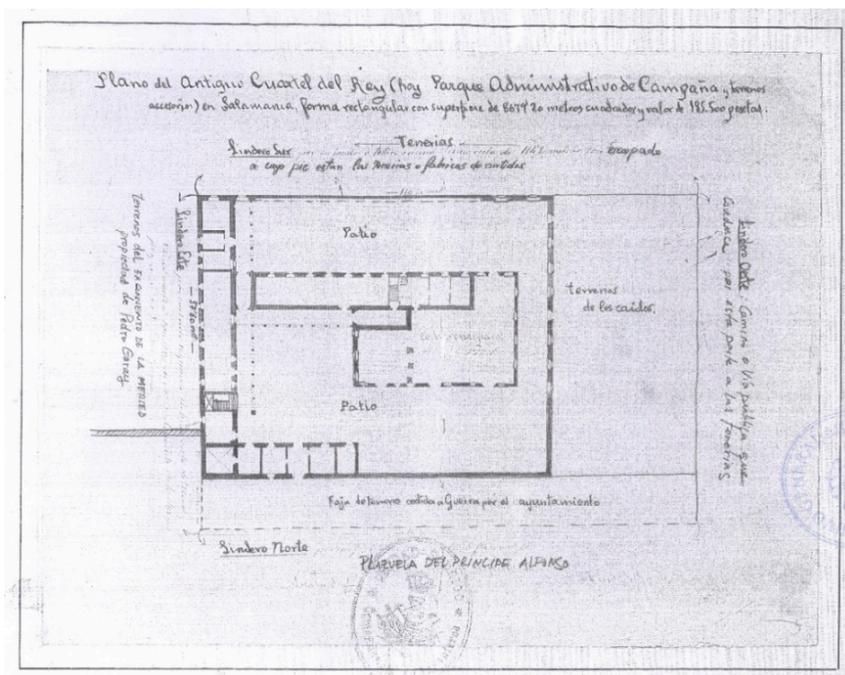 Plano del Antiguo Cuartel del Rey (hoy Parque Administrativo de Campaña y terrenos
accesorios) en Salamanca, forma rectangular con superficie de 8679'20 metros cuadrados y valor de 185.500 pesetas.
Tenerias
Lindero Sur
Escapado
a cuyo pie están las tenerias o fabricas de curtidos
Lindero Este
Terrenos del EX CONVENTO DE LA MERCED
propiedad de Pedro Garay
Patio
terrenos
de los caídos.
Lindero Oeste: Camino o Vía pública que
conduce por esta parte a las Tenerías
Patio
Faja de terreno cedida a Guerra por el ayuntamiento
Lindero Norte
PLAZUELA DEL PRINCIPE ALFONSO